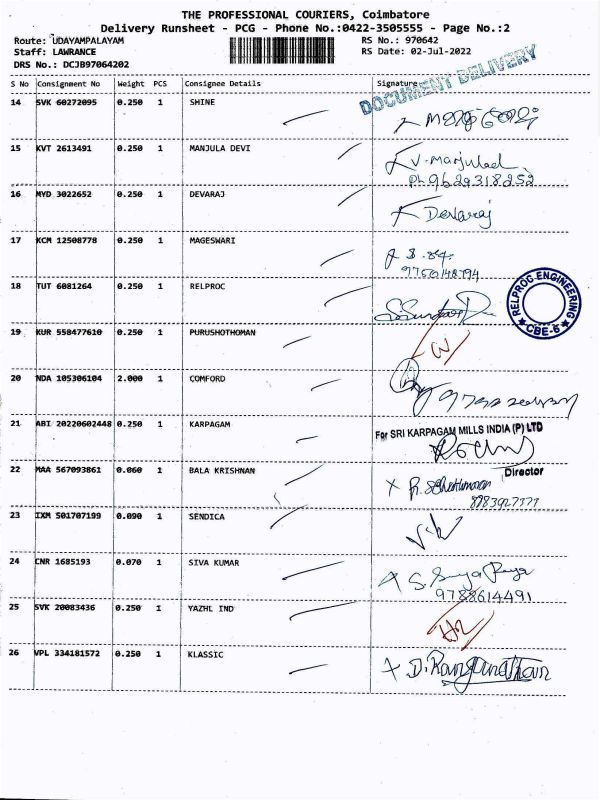 THE PROFESSIONAL COURIERS, Coimbatore
Delivery Runsheet - PCG - Phone No.:0422-3505555 - Page No.:2
Route: UDAYAMPALAYAM RS No.: 970642
Staff: LAWRANCE RS Date: 02-Jul-2022
DRS No.: DCJB97064202
DOCUMENT DELIVERY
S No Consignment No Weight PCS Consignee Details Signature
14 SVK 60272095 0.250 1 SHINE
15 KVT 2613491 0.250 1 MANJULA DEVI V. Manjula
Ph 9629318252
16 MYD 3022652 0.250 1 DEVARAJ Devaraj
17 KCM 12508778 0.250 1 MAGESWARI
9750148794
18 TUT 6081264 0.250 1 RELPROC
RELPROC ENGINEERING
CBE-6
19 KUR 558477610 0.250 1 PURUSHOTHOMAN
20 NDA 105306104 2.000 1 COMFORD
21 ABI 20220602448 0.250 1 KARPAGAM
For SRI KARPAGAM MILLS INDIA (P) LTD
Director
22 MAA 567093861 0.060 1 BALA KRISHNAN
23 IXM 501707199 0.090 1 SENDICA
24 CNR 1685193 0.070 1 SIVA KUMAR
9788614491
25 SVK 20083436 0.250 1 YAZHL IND
26 VPL 334181572 0.250 1 KLASSIC D. Ranganathan